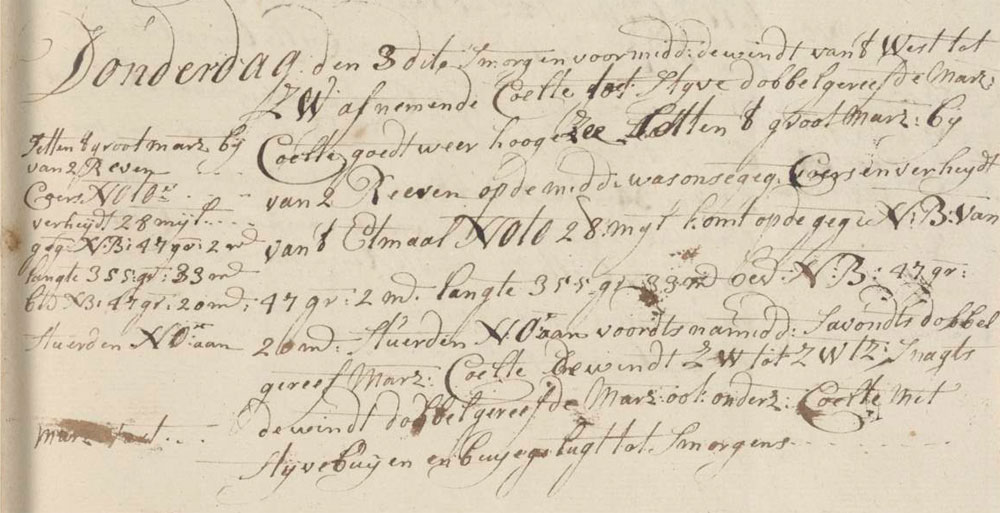 Donderdag den 3 dito Smorgen voormidd: de windt van't West tot
ZW afnemende Coelte tot Styve dobbelgereefde Marz
Coelte goedt weer hooge Zee Setten 't groot Marz: by
van 2 Reeven op de midd: was onse geg: Coers en verheydt
van 't Etmaal NOtO 28: myl komt op de geg: N: B: van
47 gr: 2 md. langte 355: gr: 33 md bev. N: B: 47 gr:
20 md: Stuerden NO aan voordts namidd: Savondts dobbel
gereef Marz: Coelte De windt ZW tot ZWtZ: Snagts
de windt dobbelgereefde Marz: ook onderz: Coelte Met
Styve buyen en buyege lugt tot Smorgens
Setten 't groot marz: by
van 2 Reven
Coers NOtO
verheydt 28 myl
geg: N: B: 47 gr: 2 md
langte 355: gr: 33 md
N B: 47 gr: 20 md:
Stuerden NO aan